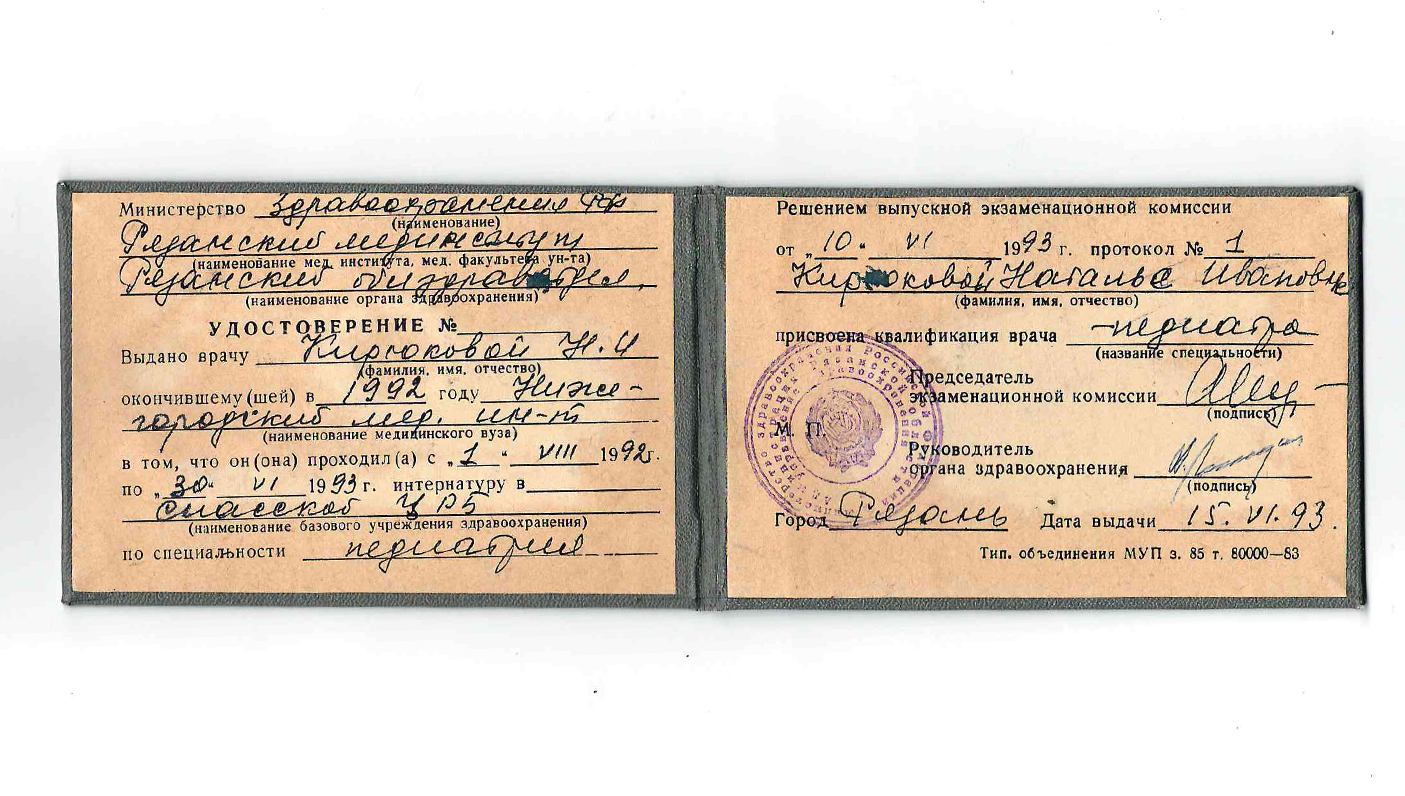 Министерство Здравоохранения РФ
(наименование)
Рязанский мединститут
(наименование мед. института, мед. факультета ун-та)
Рязанский облздравотдел
(наименование органа здравоохранения)
УДОСТОВЕРЕНИЕ №
Выдано врачу Кирюковой Н. И
(фамилия, имя, отчество)
окончившему (шей) в 1992 году Ниже-
городский мед. ин-т
(наименование медицинского вуза)
в том, что он (она) проходил (а) с „1 " VIII 1992г.
по „30" VI 1993 г. интернатуру в
Спасской ЦРБ
(наименование базового учреждения здравоохранения)
по специальности педиатрия
Решением выпускной экзаменационной комиссии
от „10" VI 1993 г. протокол № 1
Кирюковой Наталье Ивановне
(фамилия, имя, отчество)
присвоена квалификация врача -педиатра
(название специальности)
Председатель
экзаменационной комиссии
(подпись)
М. П.
Руководитель
органа здравоохранения
(подпись)
Город Рязань Дата выдачи 15. VI. 93.
Тип. объединения МУП з. 85 т. 80000—83